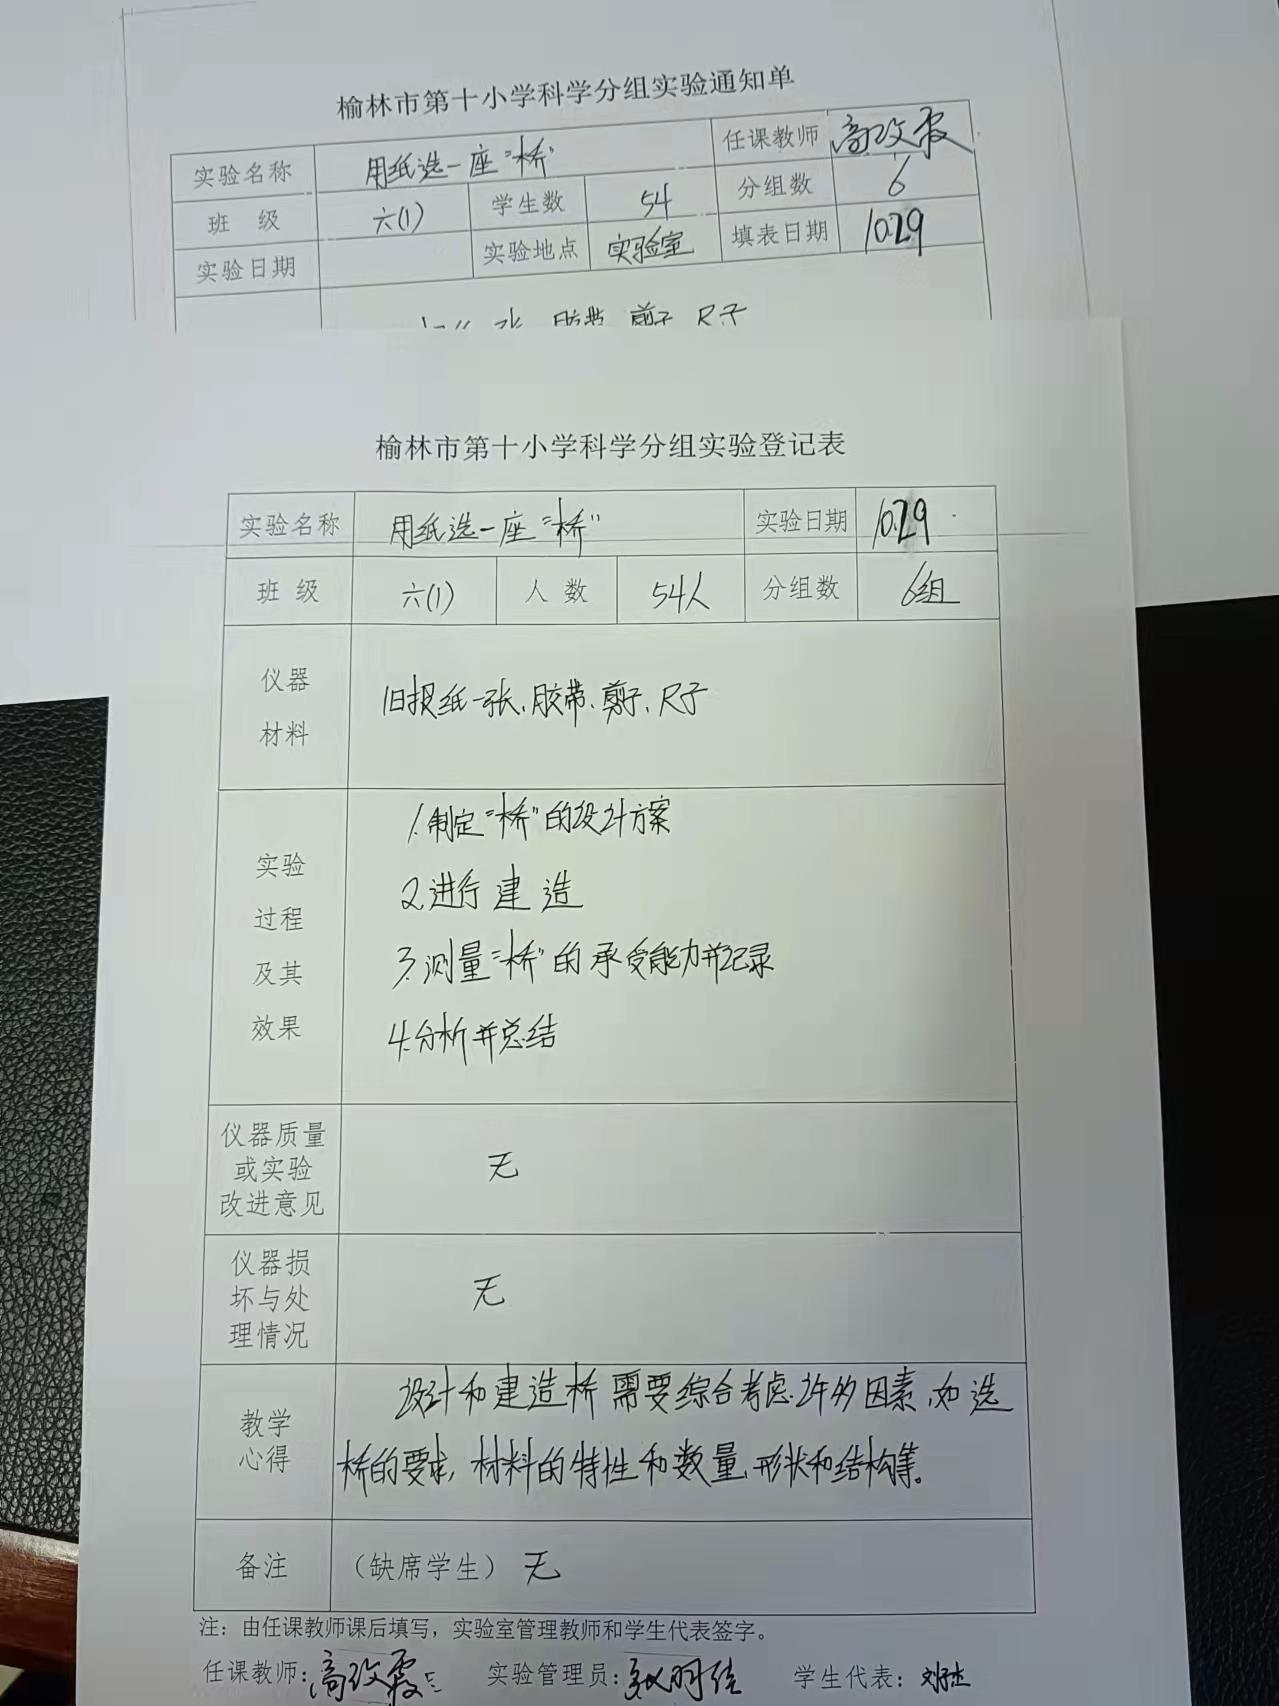 榆林市第十小学科学分组实验通知单
实验名称 用纸造一座"桥" 任课教师 高改霞
班 级 六(1) 学生数 54 分组数 6
实验日期 实验地点 实验室 填表日期 10.29
张 胶带 剪子 尺子
榆林市第十小学科学分组实验登记表
实验名称 用纸造一座"桥" 实验日期 10.29
班 级 六(1) 人 数 54人 分组数 6组
仪器
材料
旧报纸一张、胶带、剪子、尺子
实验
过程
及其
效果
1.制定"桥"的设计方案
2.进行建造
3.测量"桥"的承受能力并记录
4.分析并总结
仪器质量
或实验
改进意见
无
仪器损
坏与处
理情况
无
教学
心得
设计和建造桥需要综合考虑许多因素,如造
桥的要求,材料的特性和数量,形状和结构等。
备注 (缺席学生) 无
注：由任课教师课后填写，实验室管理教师和学生代表签字。
任课教师：高改霞 实验管理员： 学生代表：